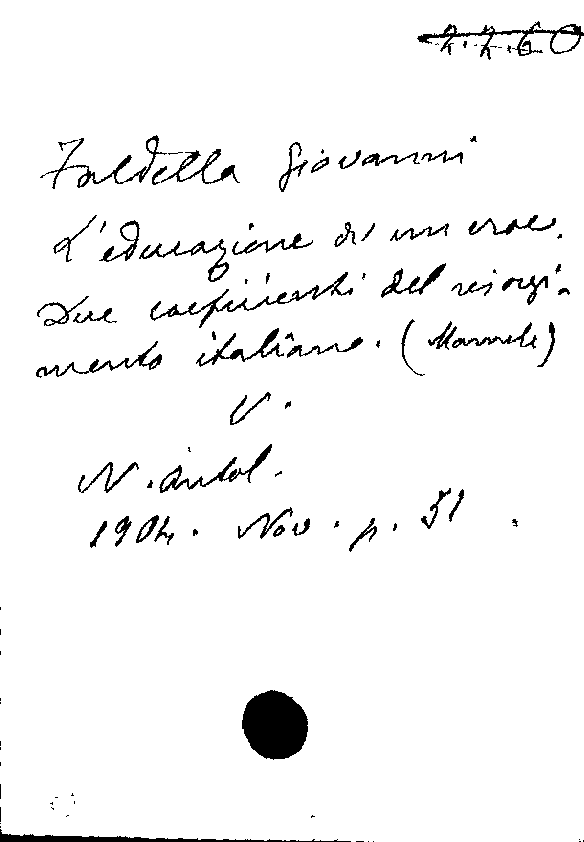 2.2.60
Faldella Giovanni
L'educazione di un eroe.
Due coefficienti del risorgi-
mento italiano. (Mameli)
V.
N. Antol.
1904. Nov. p. 51.